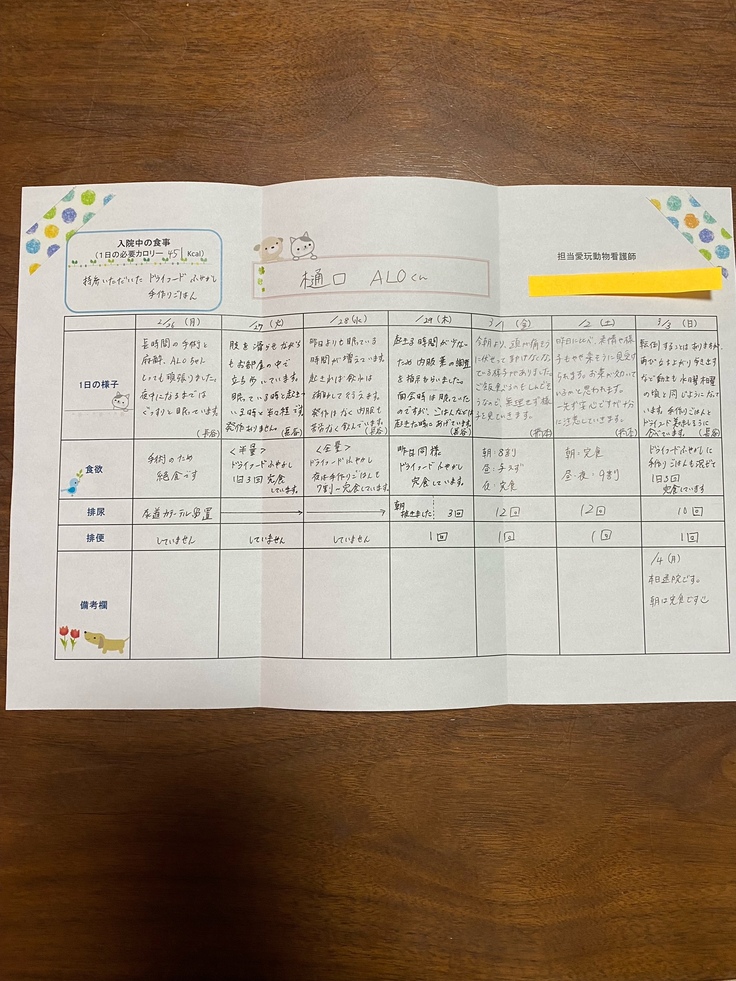 入院中の食事
(1日の必要カロリー 451 Kcal)
持参いただいた ドライフード ふやかし
手作りごはん
樋口 ALOくん
担当愛玩動物看護師
2/26 (月)
/27 (火)
/28 (水)
/29 (木)
3/1 (金)
/2 (土)
3/3 (日)
1日の様子
長時間の手術と
麻酔、ALOちゃん
とっても頑張りました。
夜中になるまでは
ぐっすりと眠っています。
(長谷)
肢を滑らせながら
もお部屋の中で
立ち歩いています。
眠っている時と起き
いる時と半々程です
発作ありません。(長谷)
昨日よりも眠っている
時間が増えています
起きれば飲水は
発作はなく内服も
飲んでいます。
(長谷)
起きる時間が少ない
ため内服薬の調整
を指示もらいました。
面会時は眠っていた
のですが、ごはんなどは
起きた時にあげています。
(長谷)
今朝より、頭が痛そう
に伏せて
でいる様子がありました。
ご飯食べるのもしんどそ
うなので、無理せず様
子を見ていきます。
昨日に比べ、表情や様
子もやや楽そうに見受け
られます。お薬が効いて
いるのと思われます。
一先ず安心ですが十分
に注意していきます。
転倒することはありますが、
再び立ち上がり歩きます
など動きも水曜木曜
の頃と同じようになって
います。手作りごはんと
ドライフード美味しそうに
食べています。(長谷)
食欲
手術のため
絶食です
<半量>
ドライフードふやかし
1日3回 完食
しています。
<全量>
ドライフードふやかし
夜は手作りごはんも
7割〜完食しています。
昨日同様
ドライフード ふやかし
完食しています。
朝:8割
昼:
夜:完食
朝:完食
昼・夜:9割
ドライフードふやかしに
手作りごはんも混ぜて
1日3回
完食しています
排尿
尿道カテーテル留置
朝
抜きました
3回
12回
12回
10回
排便
していません
していません
していません
1回
1回
1回
1回
備考欄
/4 (月)
本日退院です。
朝は完食です